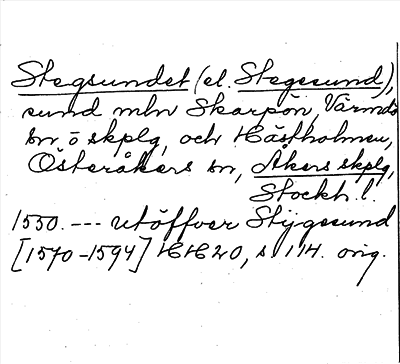 Stegsundet (el. Stegesund),
sund mln Skarpön, Värmdö
sn o skplg, och Hästholmen,
Österåkers sn, Åkers skplg,
Stockh. l.
1550. --- utöffver Stÿgesund
[1570-1594] HH20, s 114. orig.